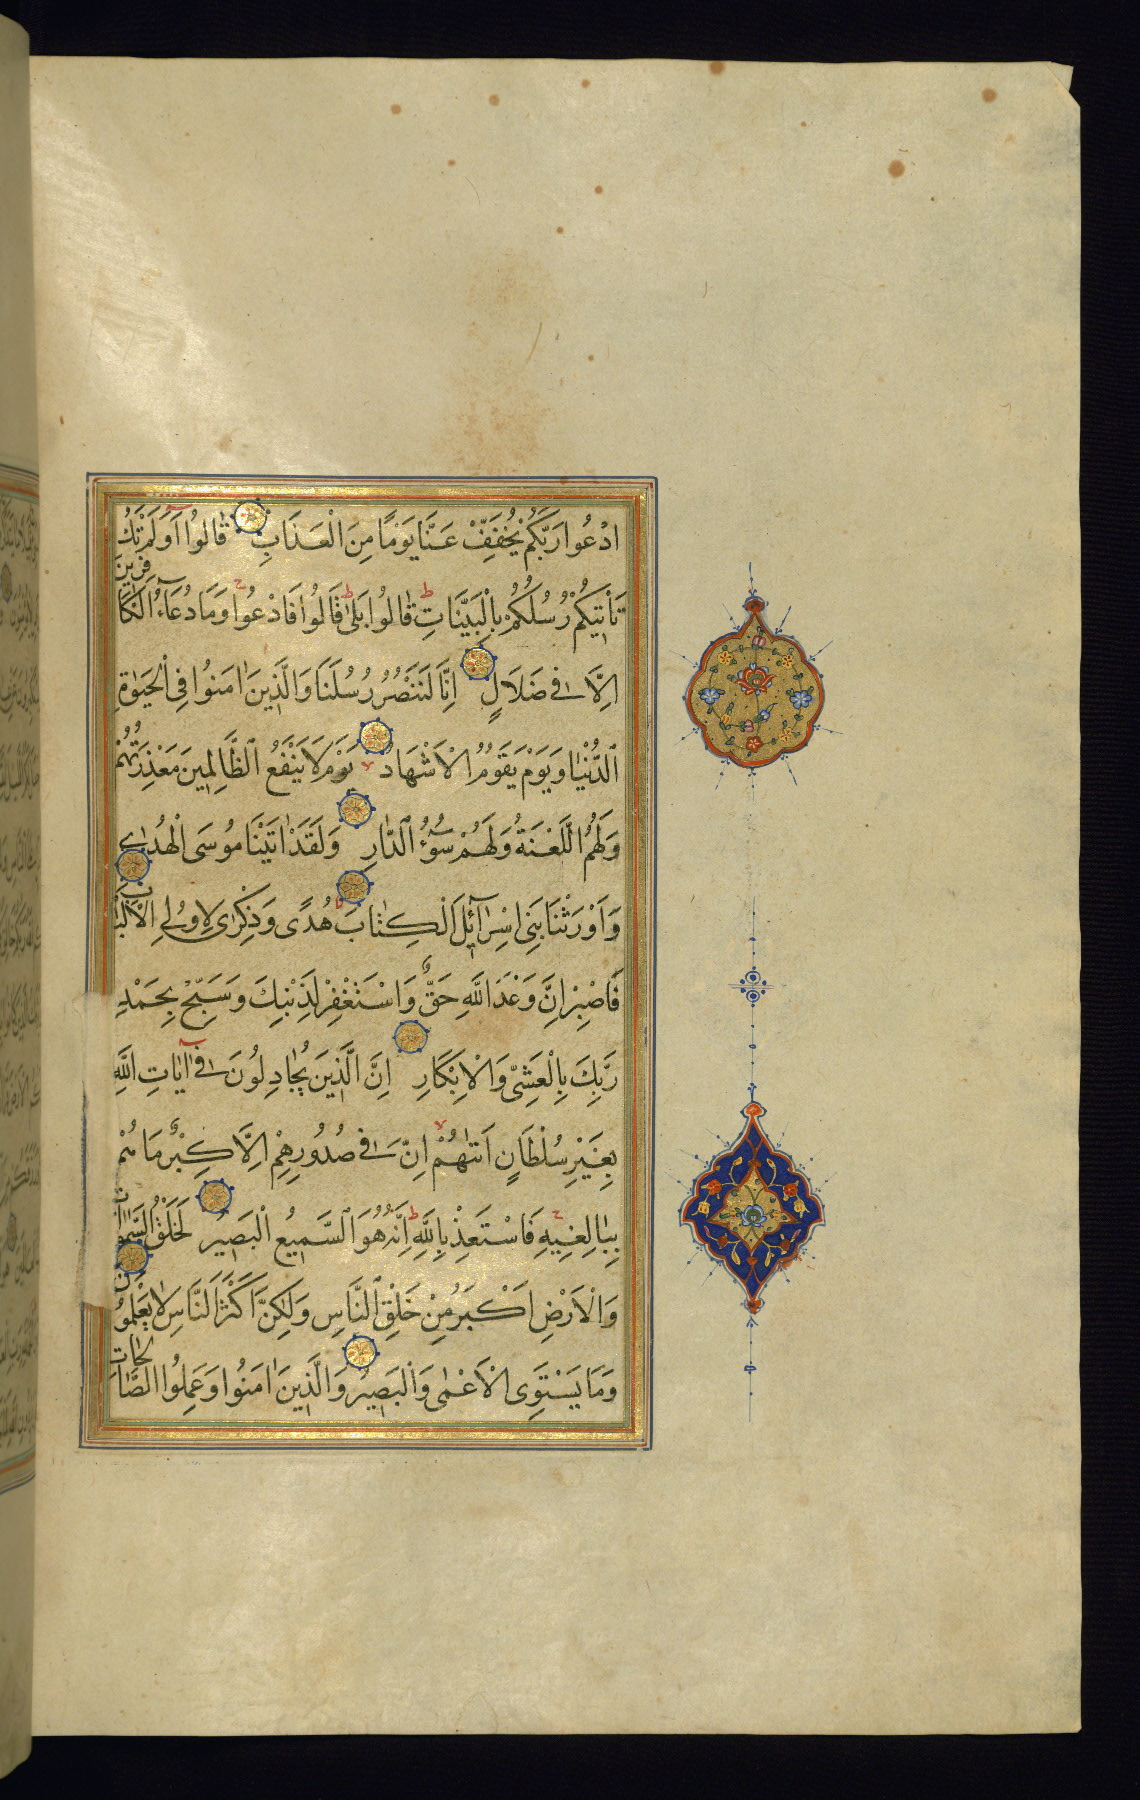 ادْعُوا رَبَّكُمْ يُخَفِّفْ عَنَّا يَوْمًا مِنَ الْعَذَابِ قَالُوا اَوَلَمْ تَكُ
تَأْتِيكُمْ رُسُلُكُمْ بِالْبَيِّنَاتِ قَالُوا بَلٰى قَالُوا فَادْعُوا وَمَا دُعَاءُ الْكَافِرِينَ
اِلَّا فِى ضَلَالٍ اِنَّا لَنَنْصُرُ رُسُلَنَا وَالَّذِينَ اٰمَنُوا فِى الْحَيٰوةِ
الدُّنْيَا وَيَوْمَ يَقُومُ الْاَشْهَادُ يَوْمَ لَا يَنْفَعُ الظَّالِمِينَ مَعْذِرَتُهُمْ
وَلَهُمُ اللَّعْنَةُ وَلَهُمْ سُوْءُ الدَّارِ وَلَقَدْ اٰتَيْنَا مُوسَى الْهُدٰى
وَاَوْرَثْنَا بَنِى اِسْرَآئِلَ الْكِتَابَ هُدًى وَذِكْرٰى لِاُولِى الْاَلْبَابِ
فَاصْبِرْ اِنَّ وَعْدَ اللّٰهِ حَقٌّ وَاسْتَغْفِرْ لِذَنْبِكَ وَسَبِّحْ بِحَمْدِ
رَبِّكَ بِالْعَشِىِّ وَالْاِبْكَارِ اِنَّ الَّذِينَ يُجَادِلُونَ فِى اٰيَاتِ اللّٰهِ
بِغَيْرِ سُلْطَانٍ اَتٰيهُمْ اِنْ فِى صُدُورِهِمْ اِلَّا كِبْرٌ مَا هُمْ
بِبَالِغِيهِ فَاسْتَعِذْ بِاللّٰهِ اِنَّهُ هُوَ السَّمِيعُ الْبَصِيرُ لَخَلْقُ السَّمٰوَاتِ
وَالْاَرْضِ اَكْبَرُ مِنْ خَلْقِ النَّاسِ وَلٰكِنَّ اَكْثَرَ النَّاسِ لَا يَعْلَمُونَ
وَمَا يَسْتَوِى الْاَعْمٰى وَالْبَصِيرُ وَالَّذِينَ اٰمَنُوا وَعَمِلُوا الصَّالِحَاتِ